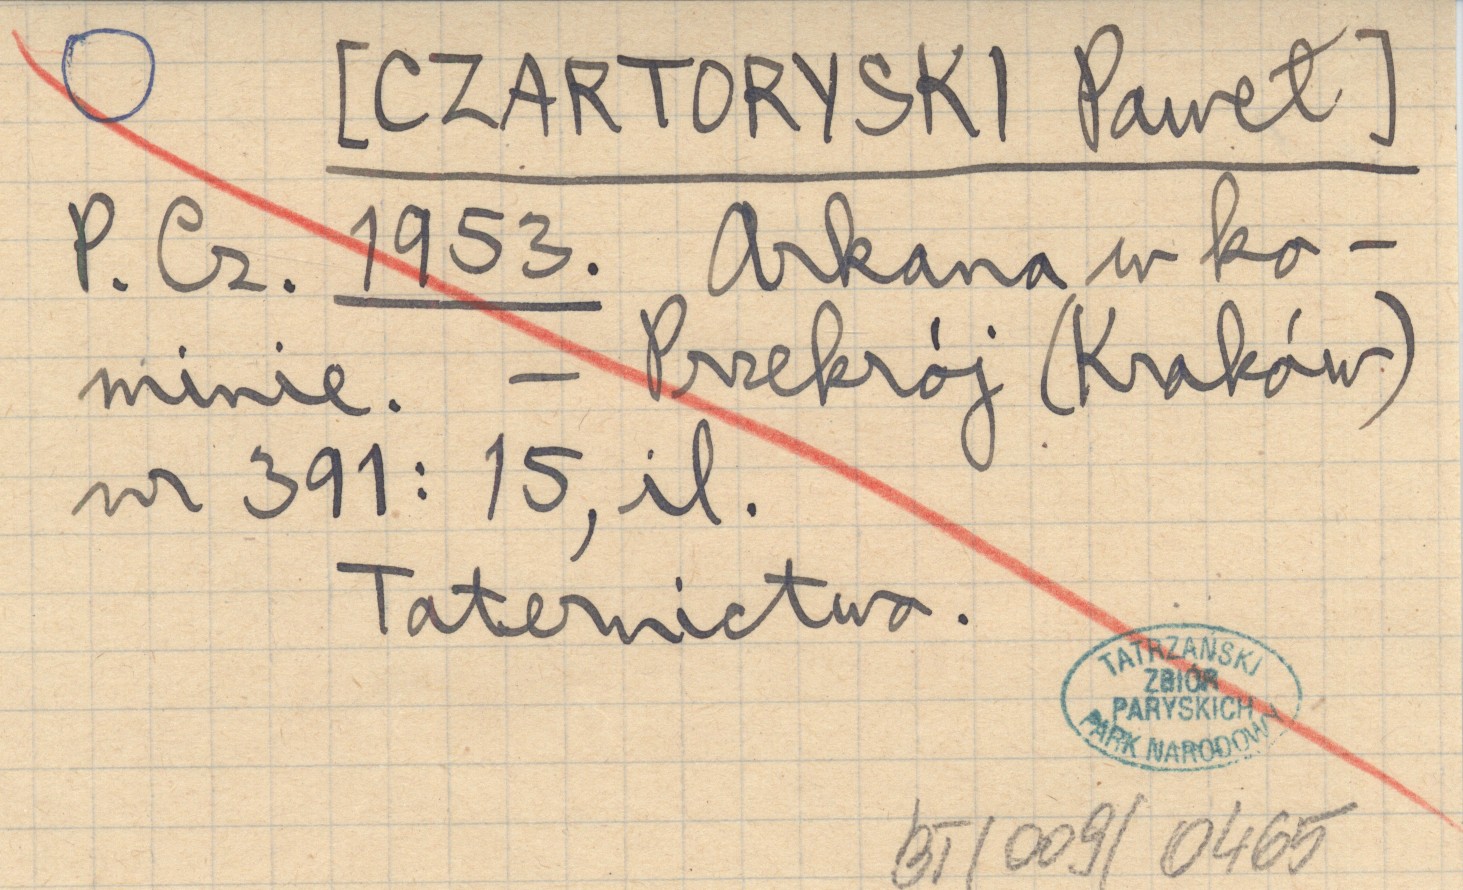 [CZARTORYSKI Paweł]
P. Cz. 1953. Arkana w ko-
minie. – Przekrój (Kraków)
nr 391: 15, il.
Taternictwo.
TATRZAŃSKI
ZBIÓR
PARYSKICH
PARK NARODOWY
BT/009/0465